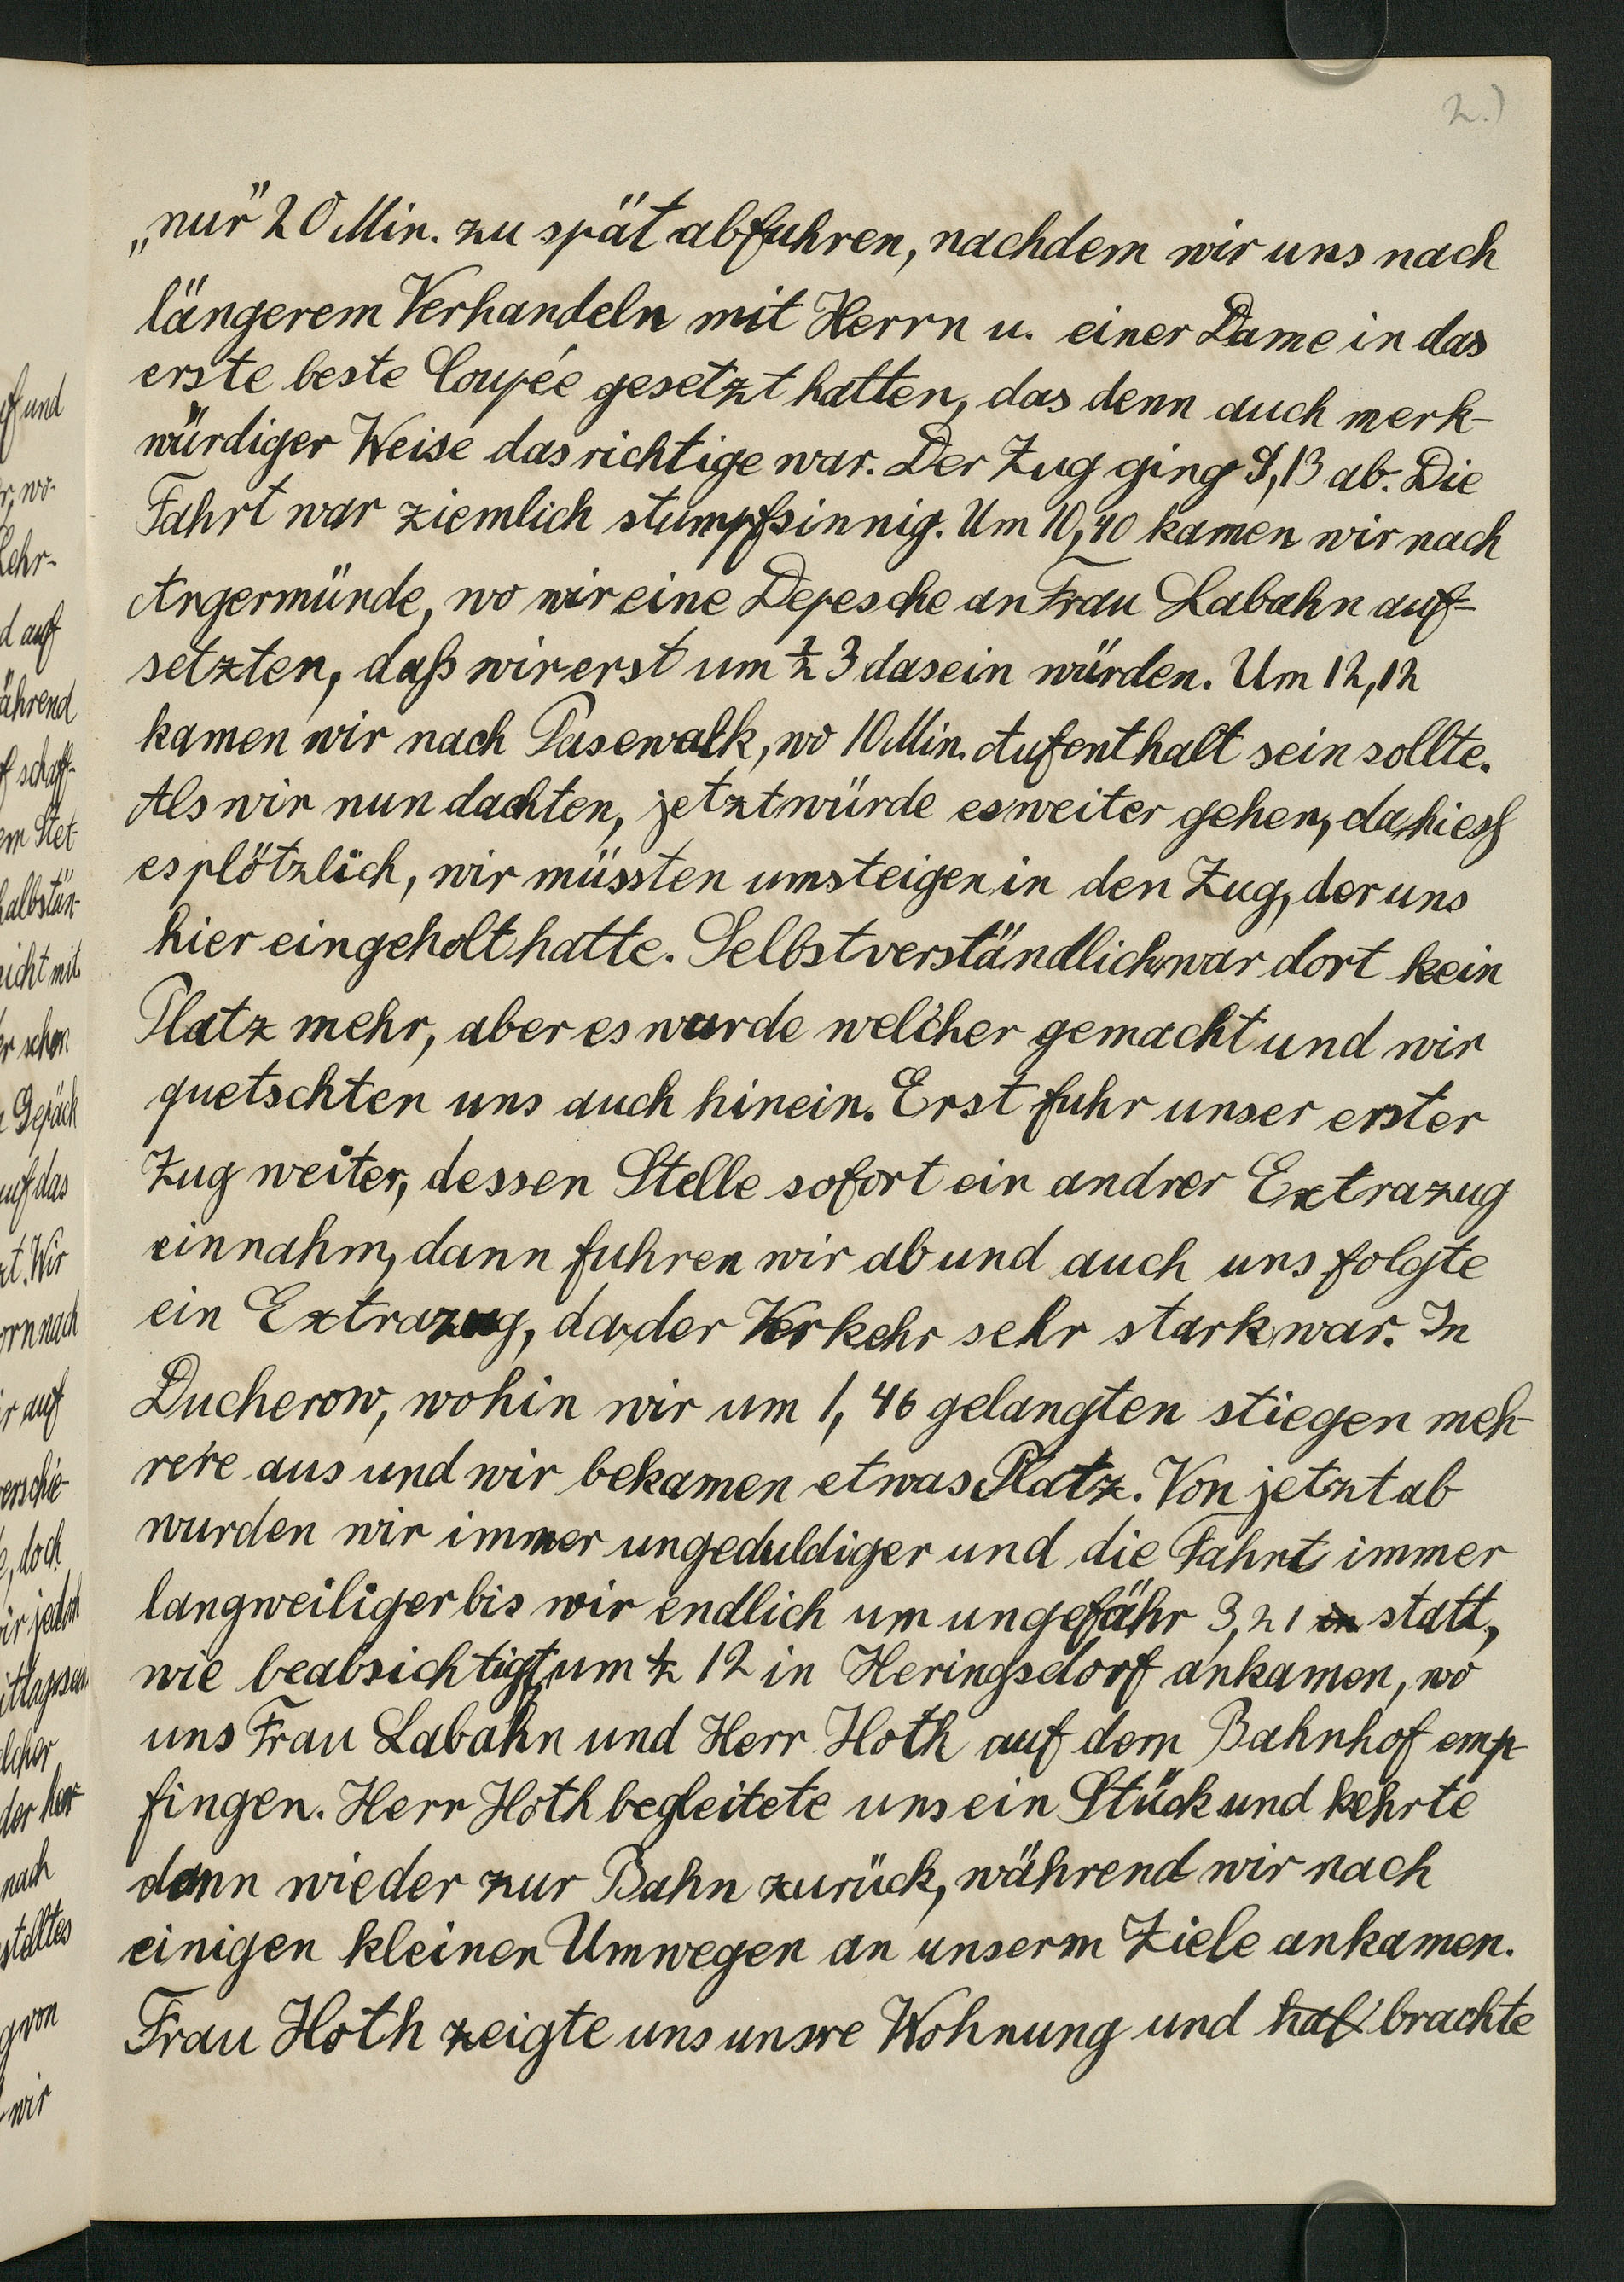 2.)
„nur" 20 Min. zu spät abfuhren, nachdem wir uns nach
längerem Verhandeln mit Herrn u. einer Dame in das
erste beste Coupée gesetzt hatten, das denn auch merk-
würdiger Weise das richtige war. Der Zug ging 9,13 ab. Die
Fahrt war ziemlich stumpfsinnig. Um 10,40 kamen wir nach
Angermünde, wo wir eine Depesche an Frau Labahn auf-
setzten, daß wir erst um ½ 3 dasein würden. Um 12,12
kamen wir nach Pasewalk, wo 10 Min. Aufenthalt sein sollte.
Als wir nun dachten, jetzt würde es weiter gehen, da hiess
es plötzlich, wir müssten umsteigen in den Zug, der uns
hier eingeholt hatte. Selbstverständlich war dort kein
Platz mehr, aber es wurde welcher gemacht und wir
quetschten uns auch hinein. Erst fuhr unser erster
Zug weiter, dessen Stelle sofort ein andrer Extrazug
einnahm, dann fuhren wir ab und auch uns folgte
ein Extrazug, da der Verkehr sehr stark war. In
Ducherow, wohin wir um 1,46 gelangten stiegen meh-
rere aus und wir bekamen etwas Platz. Von jetzt ab
wurden wir immer ungeduldiger und die Fahrt immer
langweiliger bis wir endlich um ungefähr 3,21 in statt,
wie beabsichtigt, um ½ 12 in Heringsdorf ankamen, wo
uns Frau Labahn und Herr Hoth auf dem Bahnhof emp-
fingen. Herr Hoth begleitete uns ein Stück und kehrte
dann wieder zur Bahn zurück, während wir nach
einigen kleinen Umwegen an unserm Ziele ankamen.
Frau Hoth zeigte uns unsre Wohnung und brachte
und
wo-
d auf
ährend
halbstän-
nicht mit
Gepäck
auf das
Wir
nach
auf
doch
wir jedoch
nach
von
wir